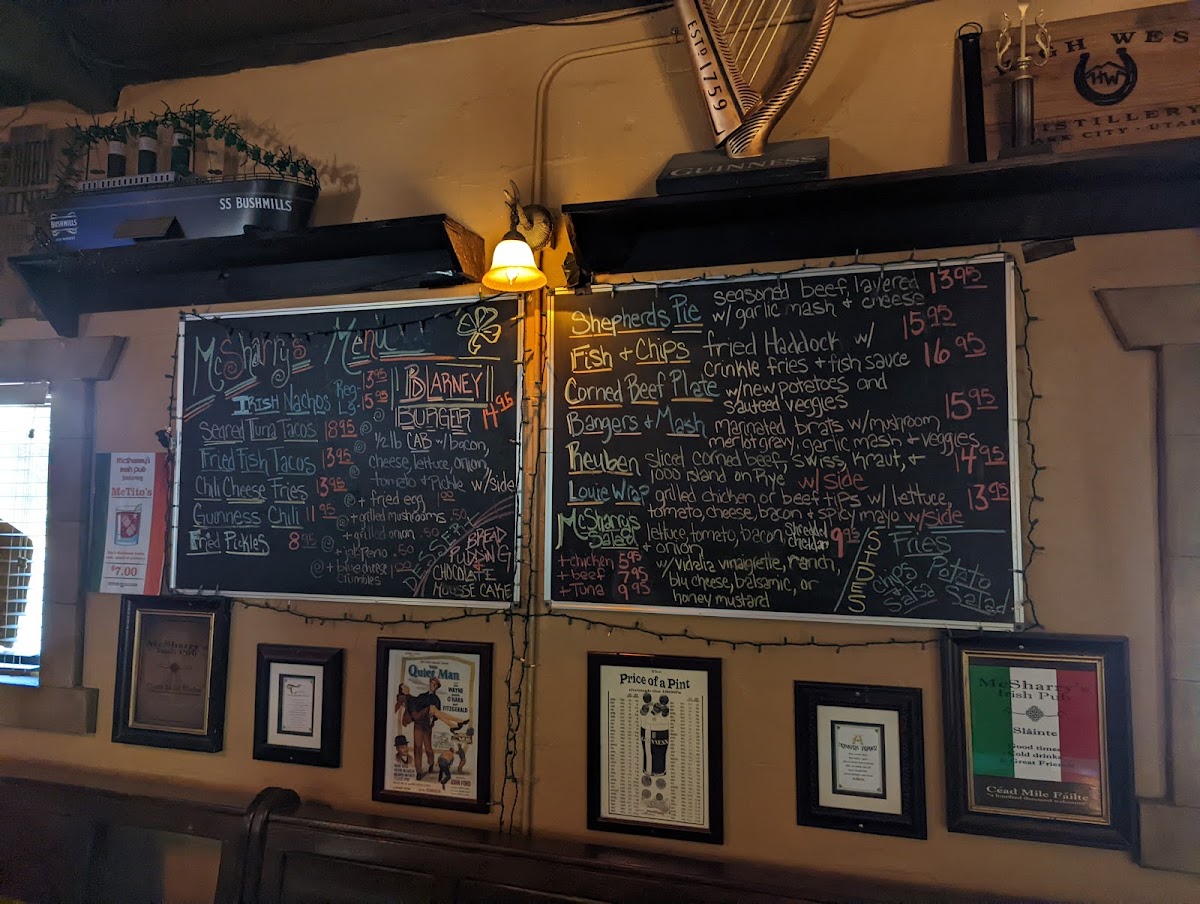 ESTD 1759
GUINNESS
HIGH WES
HW
DISTILLERY
PARK CITY · UTAH
SS BUSHMILLS
BUSHMILLS
McSharry's Menu
Irish Nachos Reg- 13.95
Lg- 15.95
Seared Tuna Tacos 18.95
Fried Fish Tacos 13.95
Chili Cheese Fries 13.95
Guinness Chili 11.95
Fried Pickles 8.95
BLARNEY
BURGER 14.95
1/2 lb CAB w/ bacon,
cheese, lettuce, onion,
tomato & Pickle w/side
+ fried egg 1.00
+ grilled mushrooms .50
+ grilled onion .50
+ jalapeno .50
+ bluecheese 1.00
crumbles
DESSERT
BREAD
PUDDING
&
CHOCOLATE
MOUSSE CAKE
Shepherds Pie seasoned beef, layered 13.95
w/ garlic mash & cheese
Fish & Chips fried Haddock w/ 15.95
crinkle fries + fish sauce
Corned Beef Plate w/new potatoes and 16.95
sauteed veggies
Bangers & Mash marinated brats w/mushroom 15.95
merlot gravy, garlic mash + veggies
Reuben sliced corned beef, swiss, kraut, & 14.95
1000 island on Rye w/ side
Louie Wrap grilled chicken or beef tips w/ lettuce, 13.95
tomato, cheese, bacon & spicy mayo w/side
McSharrys Salad lettuce, tomato, bacon shredded cheddar 9.95
& onion
w/ vidalia vinaigrette, ranch,
blu cheese, balsamic, or
honey mustard
+ chicken 5.95
+ beef 7.95
+ tuna 9.95
SIDES
Fries
Chips & Salsa
Potato Salad
McSharry's
Irish Pub
McTito's
$7.00
McSharry's
Irish Pub
The
Quiet Man
WAYNE
O'HARA
FITZGERALD
JOHN FORD
The
Price of a Pint
GUINNESS
McSharry's
Irish Pub
Sláinte
Good times
Cold drinks
& Great Friends
Céad Míle Fáilte